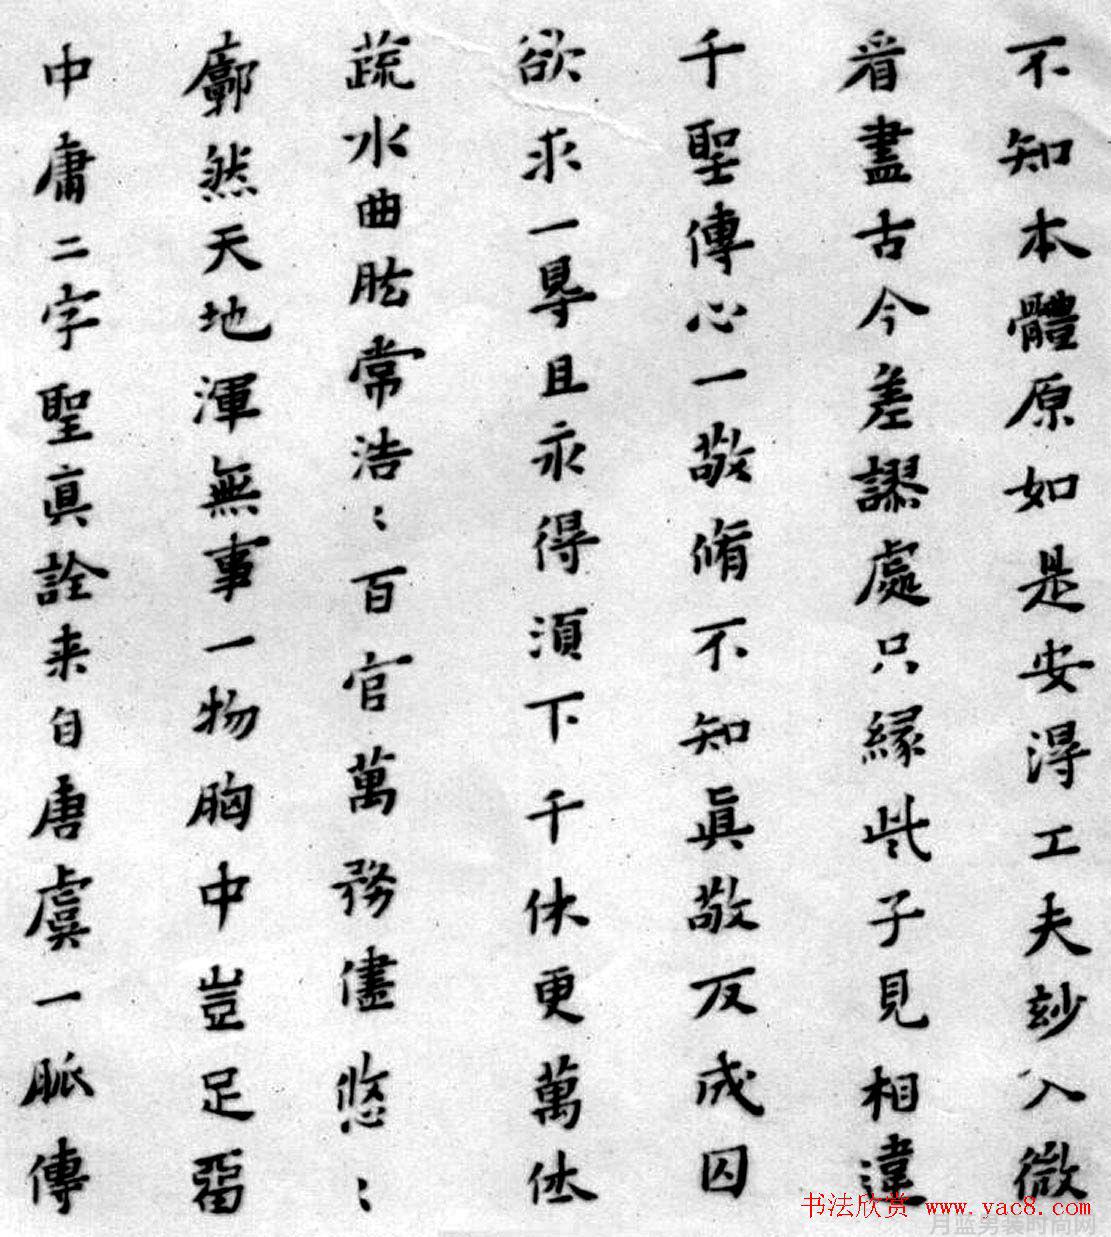 不知本體原如是安得工夫玅入微
看盡古今差謬處只緣此子見相違
千聖傳心一敬脩不知眞敬反成囚
欲求一㝵且永得須下千休更萬休
蔬水曲肱常浩〻百官萬務儘悠〻
廓然天地渾無事一物胸中豈足留
中庸二字聖眞詮来自唐虞一脈傳
书法欣赏 www.yac8.com
月蓝男装时尚网